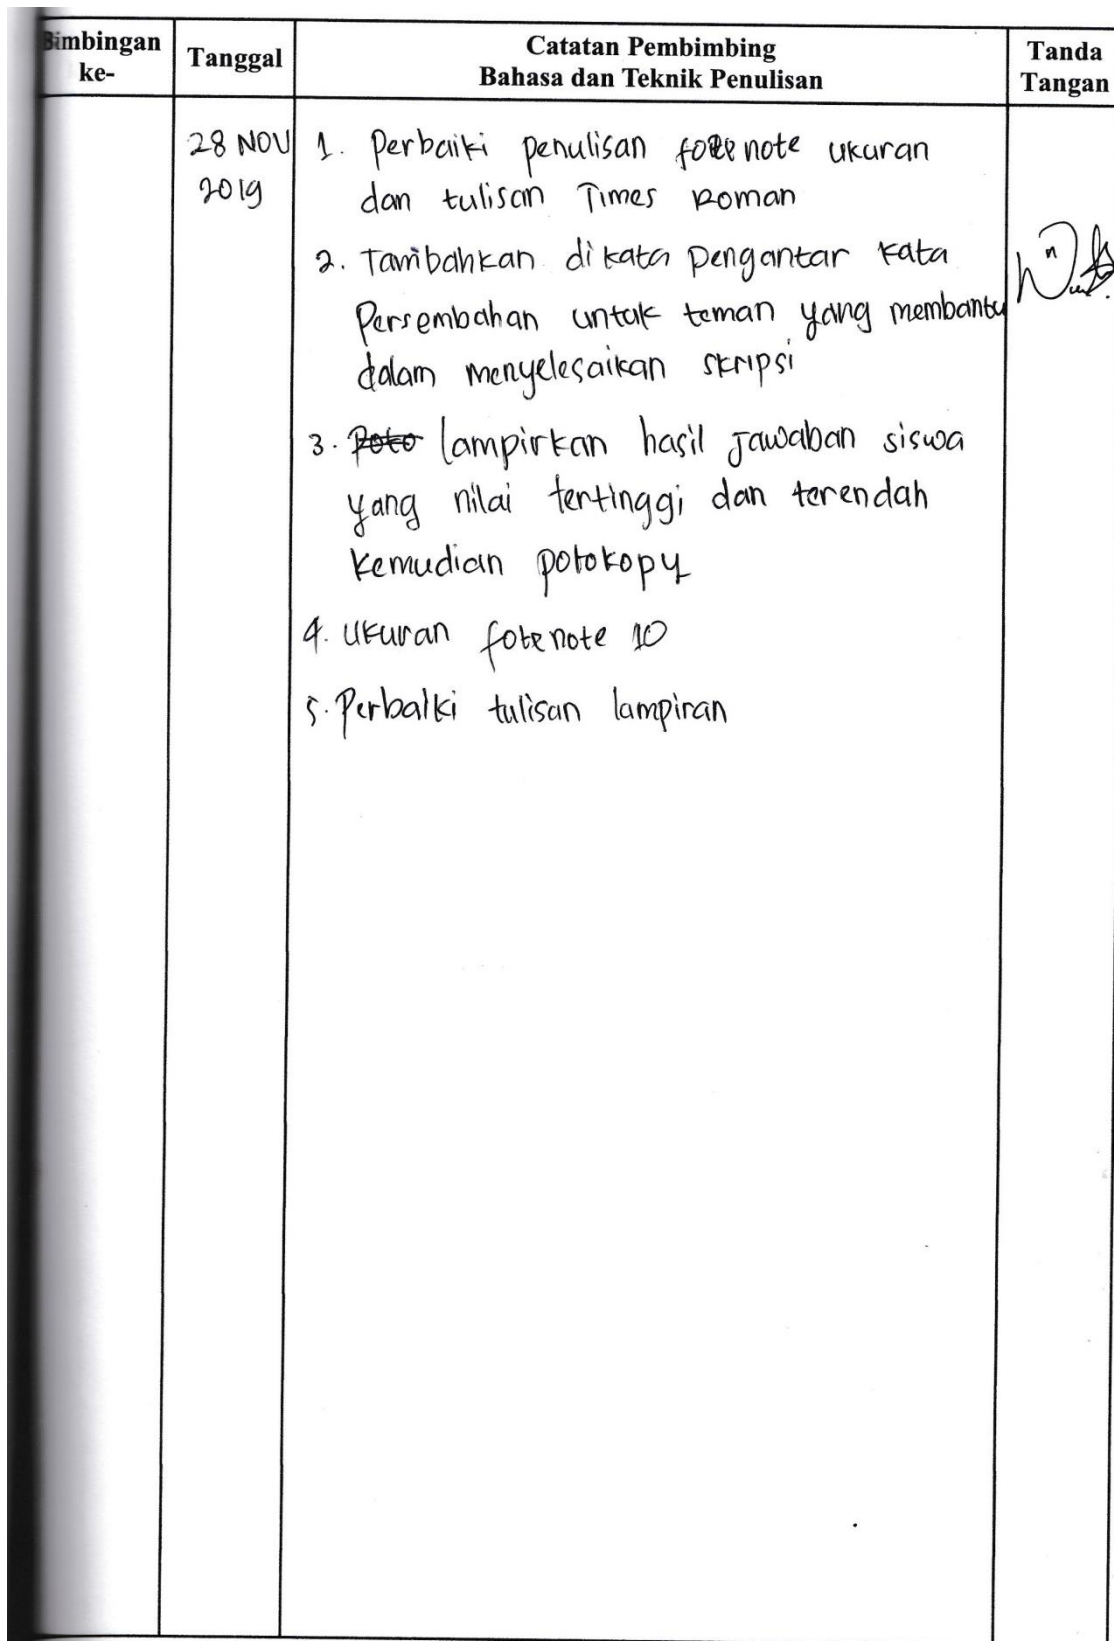 Bimbingan ke-
Tanggal
Catatan Pembimbing
Bahasa dan Teknik Penulisan
Tanda Tangan
28 NOV 2019
1. Perbaiki penulisan footenote ukuran
dan tulisan Times Roman
2. Tambahkan dikata pengantar kata
Persembahan untuk teman yang membantu
dalam menyelesaikan skripsi
3. Poto lampirkan hasil jawaban siswa
yang nilai tertinggi dan terendah
kemudian potokopy
4. Ukuran fotenote 10
5. Perbaiki tulisan lampiran